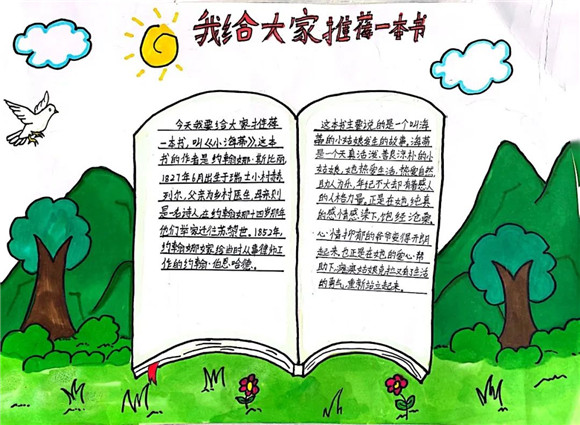 我给大家推荐一本书
今天我要给大家推荐
一本书,叫《小海蒂》,这本
书的作者是约翰娜·斯比丽,
1827年6月出生于瑞士小村赫
列尔,父亲为乡村医生,母亲则
是一名诗人,在约翰娜十四岁那年
他们举家迁往苏黎世,1852年,
约翰娜嫁给曲时从事律师工
作的约翰·伯恩哈德。
这本书主要说的是一个叫海
蒂的小姑娘发生的故事,海蒂
是一个天真活泼、善良淳朴的小
姑娘,她热爱生活,热爱自然,
助人为乐,年纪不大却有着感人
的人格力量。正是在她纯真
的感情感染下,饱经沧桑、
心情抑郁的爷爷变得开朗
起来,也正是在她的爱心帮
助下,瘫痪姑娘克拉又有了生活
的勇气,重新站立起来。